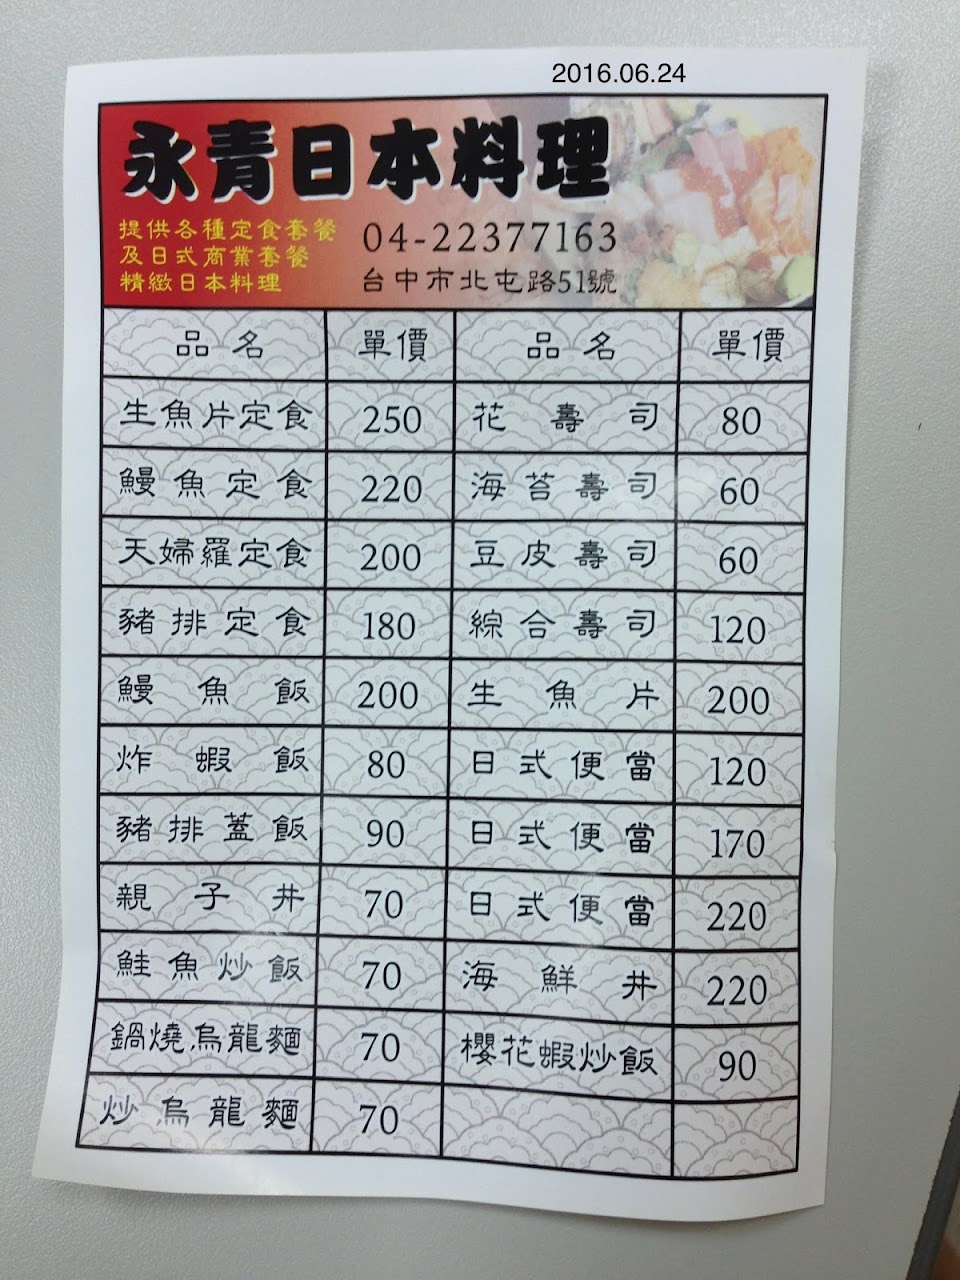 2016.06.24
永青日本料理
提供各種定食套餐
及日式商業套餐
精緻日本料理
04-22377163
台中市北屯路51號
品名 單價 品名 單價
生魚片定食 250 花壽司 80
鰻魚定食 220 海苔壽司 60
天婦羅定食 200 豆皮壽司 60
豬排定食 180 綜合壽司 120
鰻魚飯 200 生魚片 200
炸蝦飯 80 日式便當 120
豬排蓋飯 90 日式便當 170
親子丼 70 日式便當 220
鮭魚炒飯 70 海鮮丼 220
鍋燒烏龍麵 70 櫻花蝦炒飯 90
炒烏龍麵 70